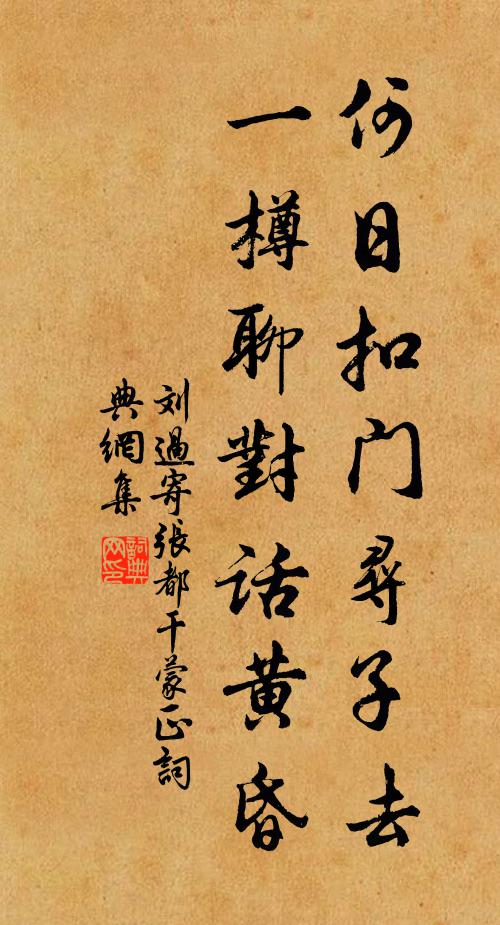 何日扣門尋子去
一樽聊對話黄昏
刘過寄張都干蒙正詞
典網集
詞典
网印